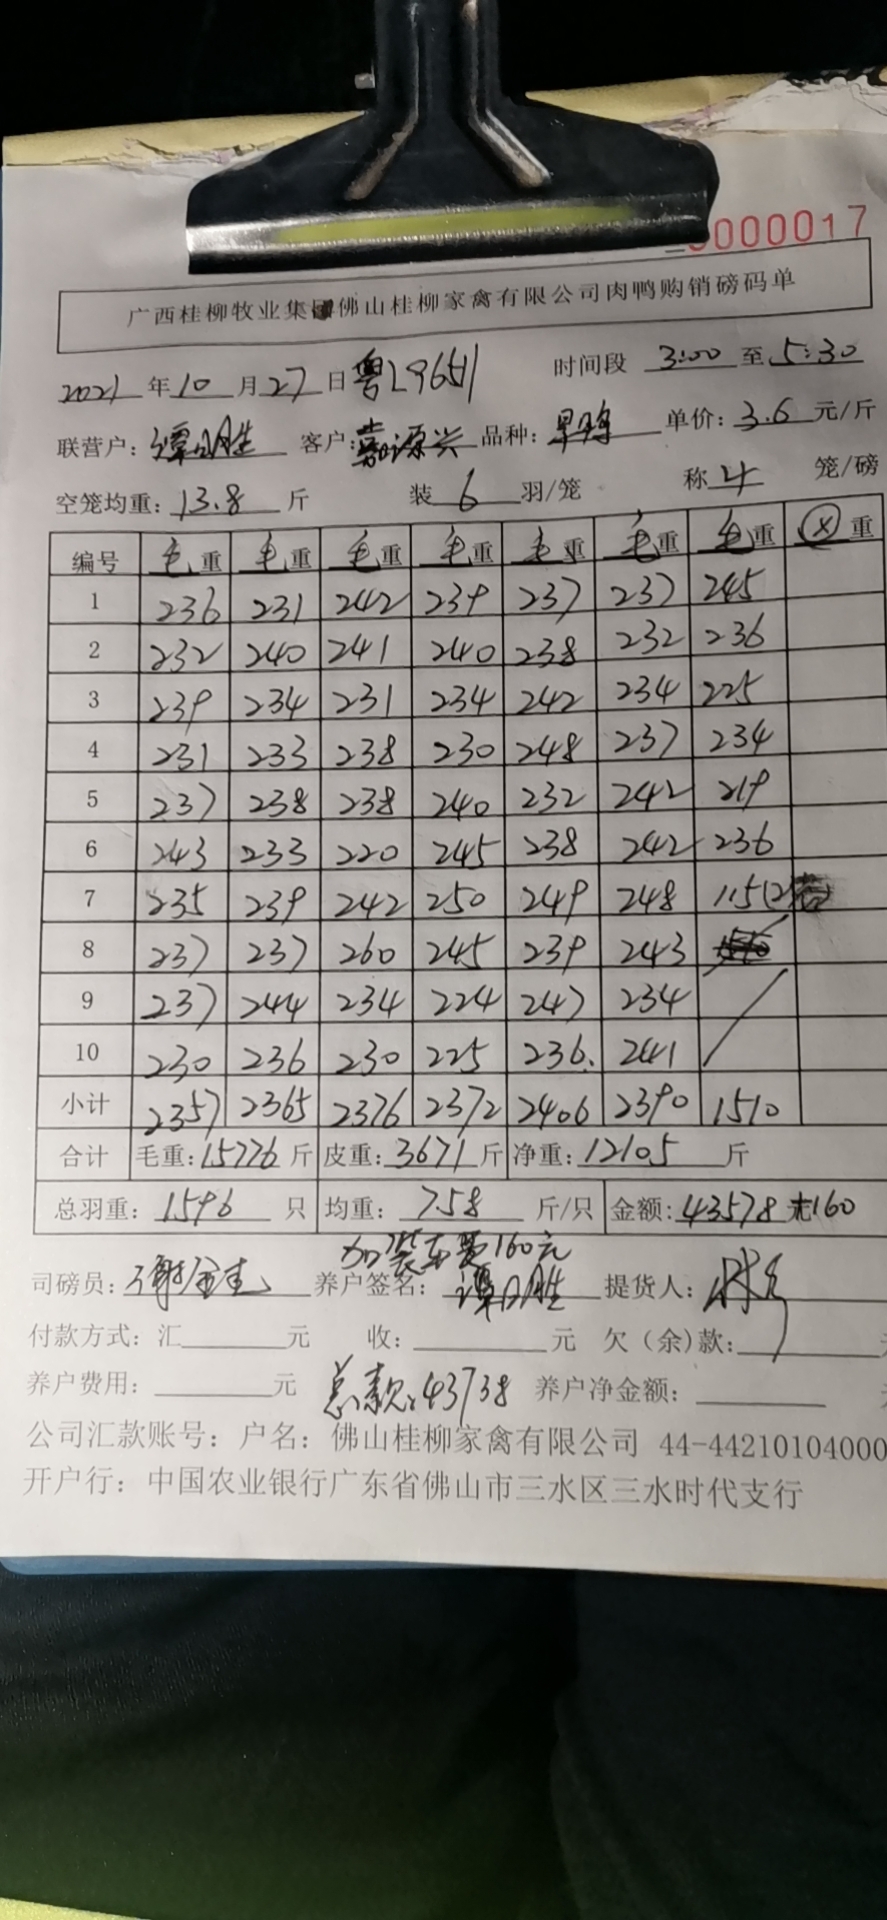 000017
广西桂柳牧业集团佛山桂柳家禽有限公司肉鸭购销磅码单
2021年10月27日 粤L9651 时间段 3:00 至 5:30
联营户: 谭日胜 客户: 嘉源兴 品种: 单价: 3.6 元/斤
空笼均重: 13.8 斤 装 6 羽/笼 称 4 笼/磅
编号 毛重 毛重 毛重 毛重 毛重 毛重 毛重 重
1 236 231 242 239 237 237 245
2 232 240 241 240 238 232 236
3 239 234 231 234 242 234 225
4 231 233 238 230 248 237 234
5 237 238 238 240 232 242 219
6 243 233 220 245 238 242 236
7 235 239 242 250 249 248 115(2
8 237 237 260 245 239 243
9 237 244 234 224 247 234
10 230 236 230 225 236. 241
小计 2357 2365 2376 2372 2406 2390 1510
合计 毛重: 15776 斤 皮重: 3671 斤 净重: 12105 斤
总羽重: 1596 只 均重: 7.58 斤/只 金额: 43578 元160
加装车费160元
司磅员: 养户签名: 谭日胜 提货人:
付款方式: 汇 元 收: 元 欠(余)款:
养户费用: 元 总款: 43738 养户净金额:
公司汇款账号: 户名: 佛山桂柳家禽有限公司 44-44210104000
开户行: 中国农业银行广东省佛山市三水区三水时代支行